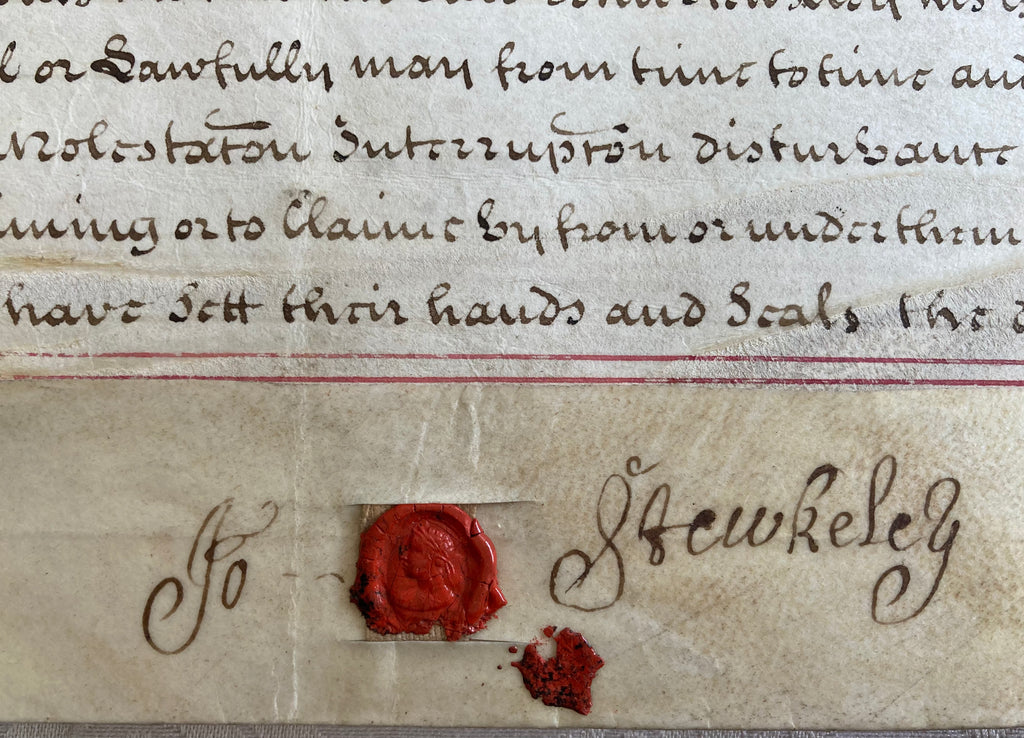 l or Lawfully may from time to time and
Molestac̃on Interrupc̃on disturbance
iming or to Claime by from or under them
have Sett their hands and Seals the d
Jo Stewkeley